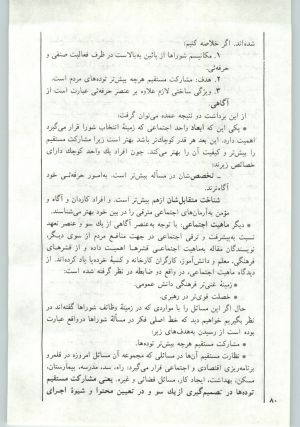 شده‌اند. اگر خلاصه کنیم:
۱. مکانیسم شوراها از پائین به‌بالاست در ظرف فعالیت صنفی و
حرفه‌ئی.
۲. هدف: مشارکت مستقیم هرچه بیش‌تر توده‌های مردم است.
۳. ویژگی ساختی لازم علاوه بر عنصر حرفه‌ئی عبارت است از
آگاهی.
از این برداشت دو نتیجه عمده می‌توان گرفت:
* یکی این که ابعاد واحد اجتماعی که زمینهٔ انتخاب شورا قرار می‌گیرد
اهمیت دارد. این بعد هر قدر کوچك‌تر باشد بهتر است زیرا مشارکت مستقیم
را بیش‌تر و کیفیت آن را بهتر می‌کند. چون افراد یك واحد کوچك دارای
خصائص زیرند:
ـ تخصص‌شان در مسأله بیش‌تر است. به‌امور حرفه‌ئی خود
آگاه‌ترند.
ـ شناخت متقابل‌شان ازهم بیش‌تر است. و افراد کاردان و آگاه و
مؤمن به‌آرمان‌های اجتماعی مترقی را در بین خود بهتر می‌شناسند.
* دیگر ماهیت اجتماعی: با توجه به‌عنصر آگاهی از یك سو و عنصر تعهد
نسبت به‌پیشرفت و ترقی اجتماعی در جهت منافع مردم از سوی دیگر،
نویسندگان مقاله به‌ماهیت اجتماعی قشرها اهمیت داده و از قشرهای
فرهنگی، معلم و دانش‌آموز، کارگران کارخانه و کسبهٔ خرده‌پا یاد کرده‌اند. از
دیدگاه ماهیت اجتماعی، در واقع دو ضابطه در نظر گرفته شده است:
ـ زمینهٔ غنی‌تر فرهنگی دانش عمومی.
ـ خصلت قوی‌تر در رهبری.
حال اگر این مسائل را با مواردی که در زمینهٔ وظائف شوراها گفته‌اند در
نظر بگیریم خواهیم دید که خط اصلی فکر در مسألهٔ شوراها درواقع عبارت
بوده است از رسیدن به‌هدف‌های زیر:
* مشارکت مستقیم هرچه بیش‌تر توده‌ها.
* نظارت مستقیم آن‌ها در مسائلی که مجموعه آن مسائل امروزه در قلمرو
برنامه‌ریزی اقتصادی و اجتماعی قرار می‌گیرد: راه، سد، مدرسه، بیمارستان،
مسکن، بهداشت، ایجاد کار، مسائل قضائی و غیره. یعنی مشارکت مستقیم
توده‌ها در تصمیم‌گیری از یك سو و در تعیین محتوا و شیوهٔ اجرای
۸۰